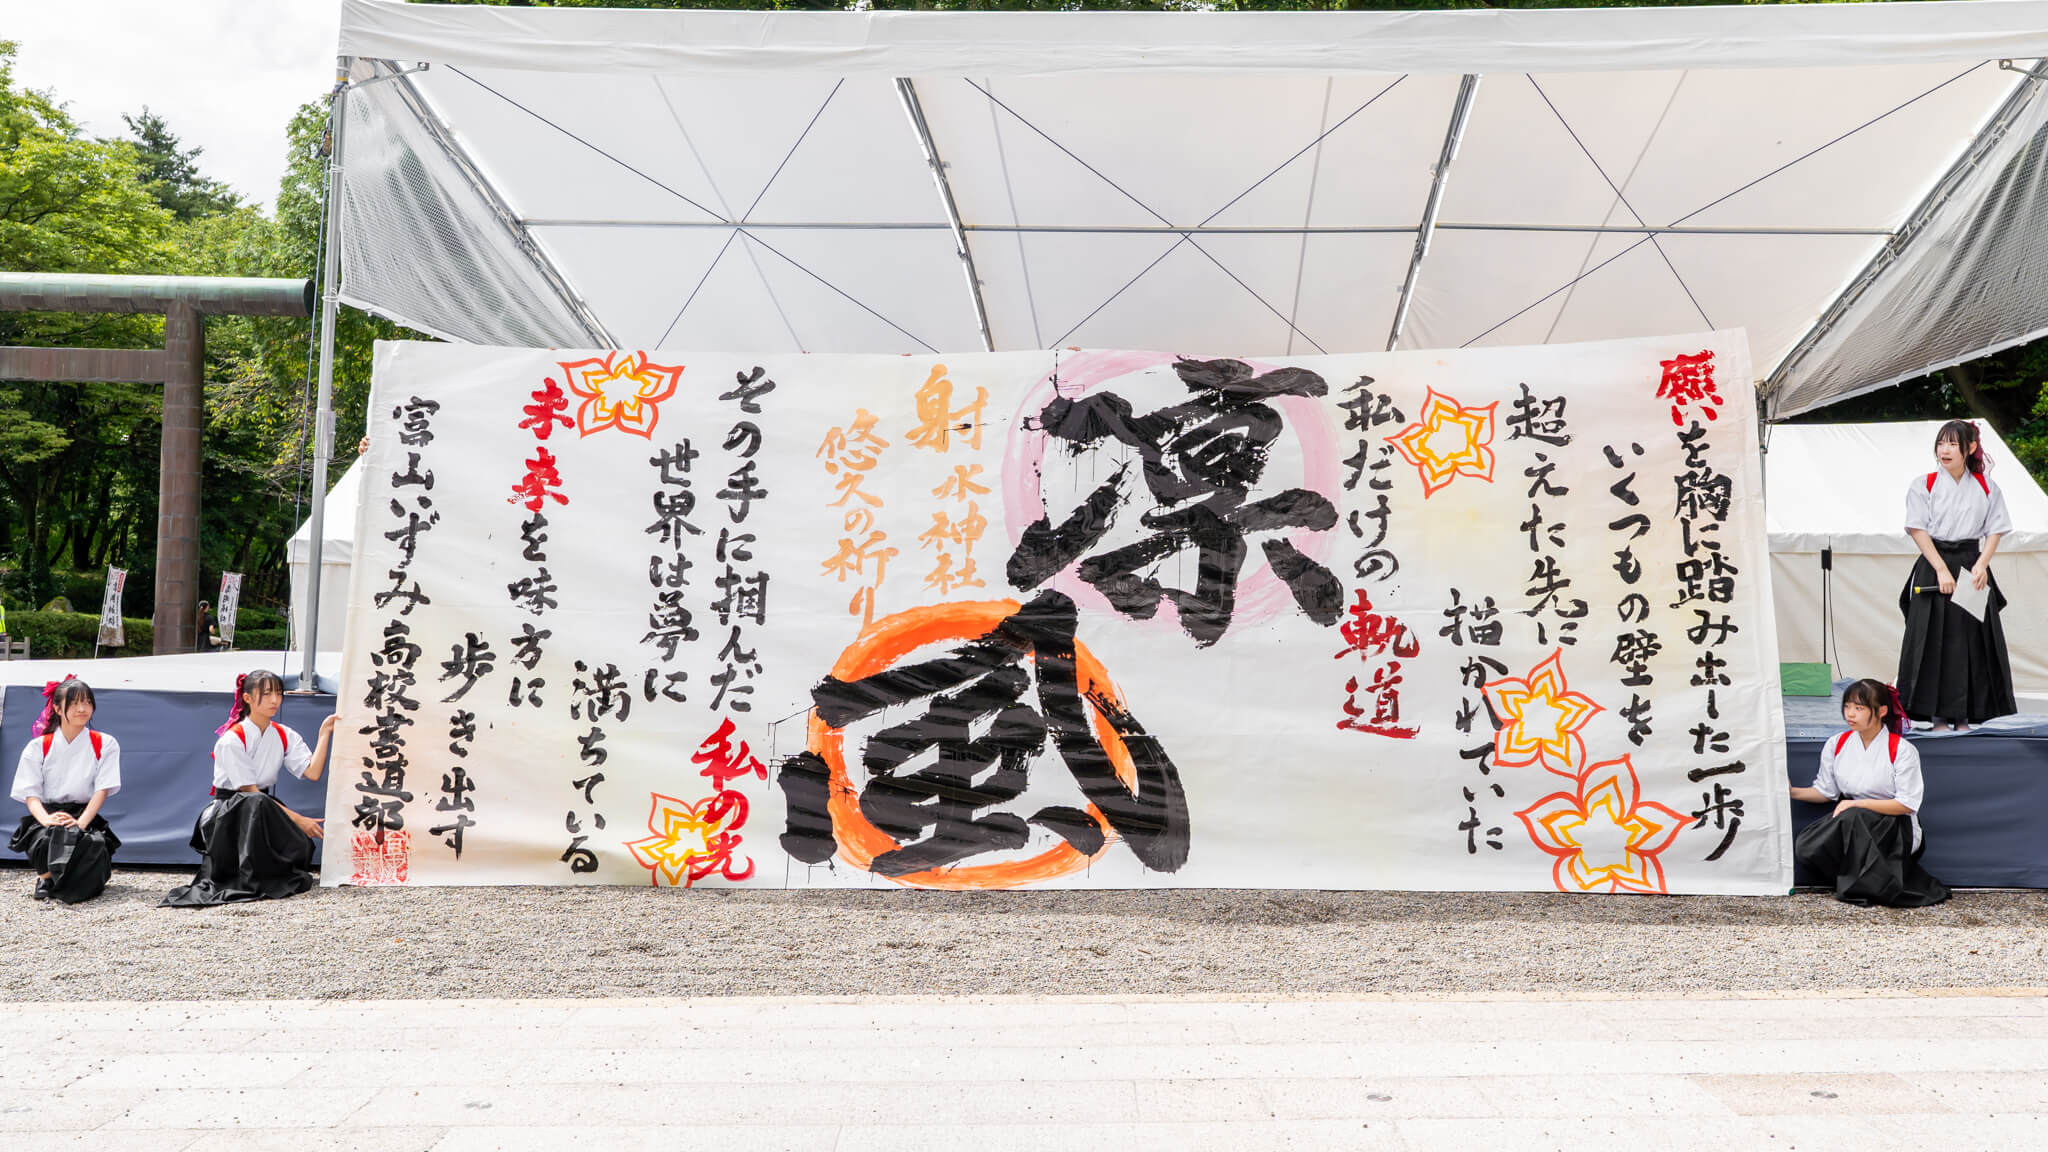 願いを胸に踏み出した一歩
いくつもの壁を
超えた先に
描かれていた
私だけの軌道
凛
風
射水神社
悠久の祈り
その手に掴んだ私の光
世界は夢に
満ちている
未来を味方に
歩き出す
富山いずみ高校書道部